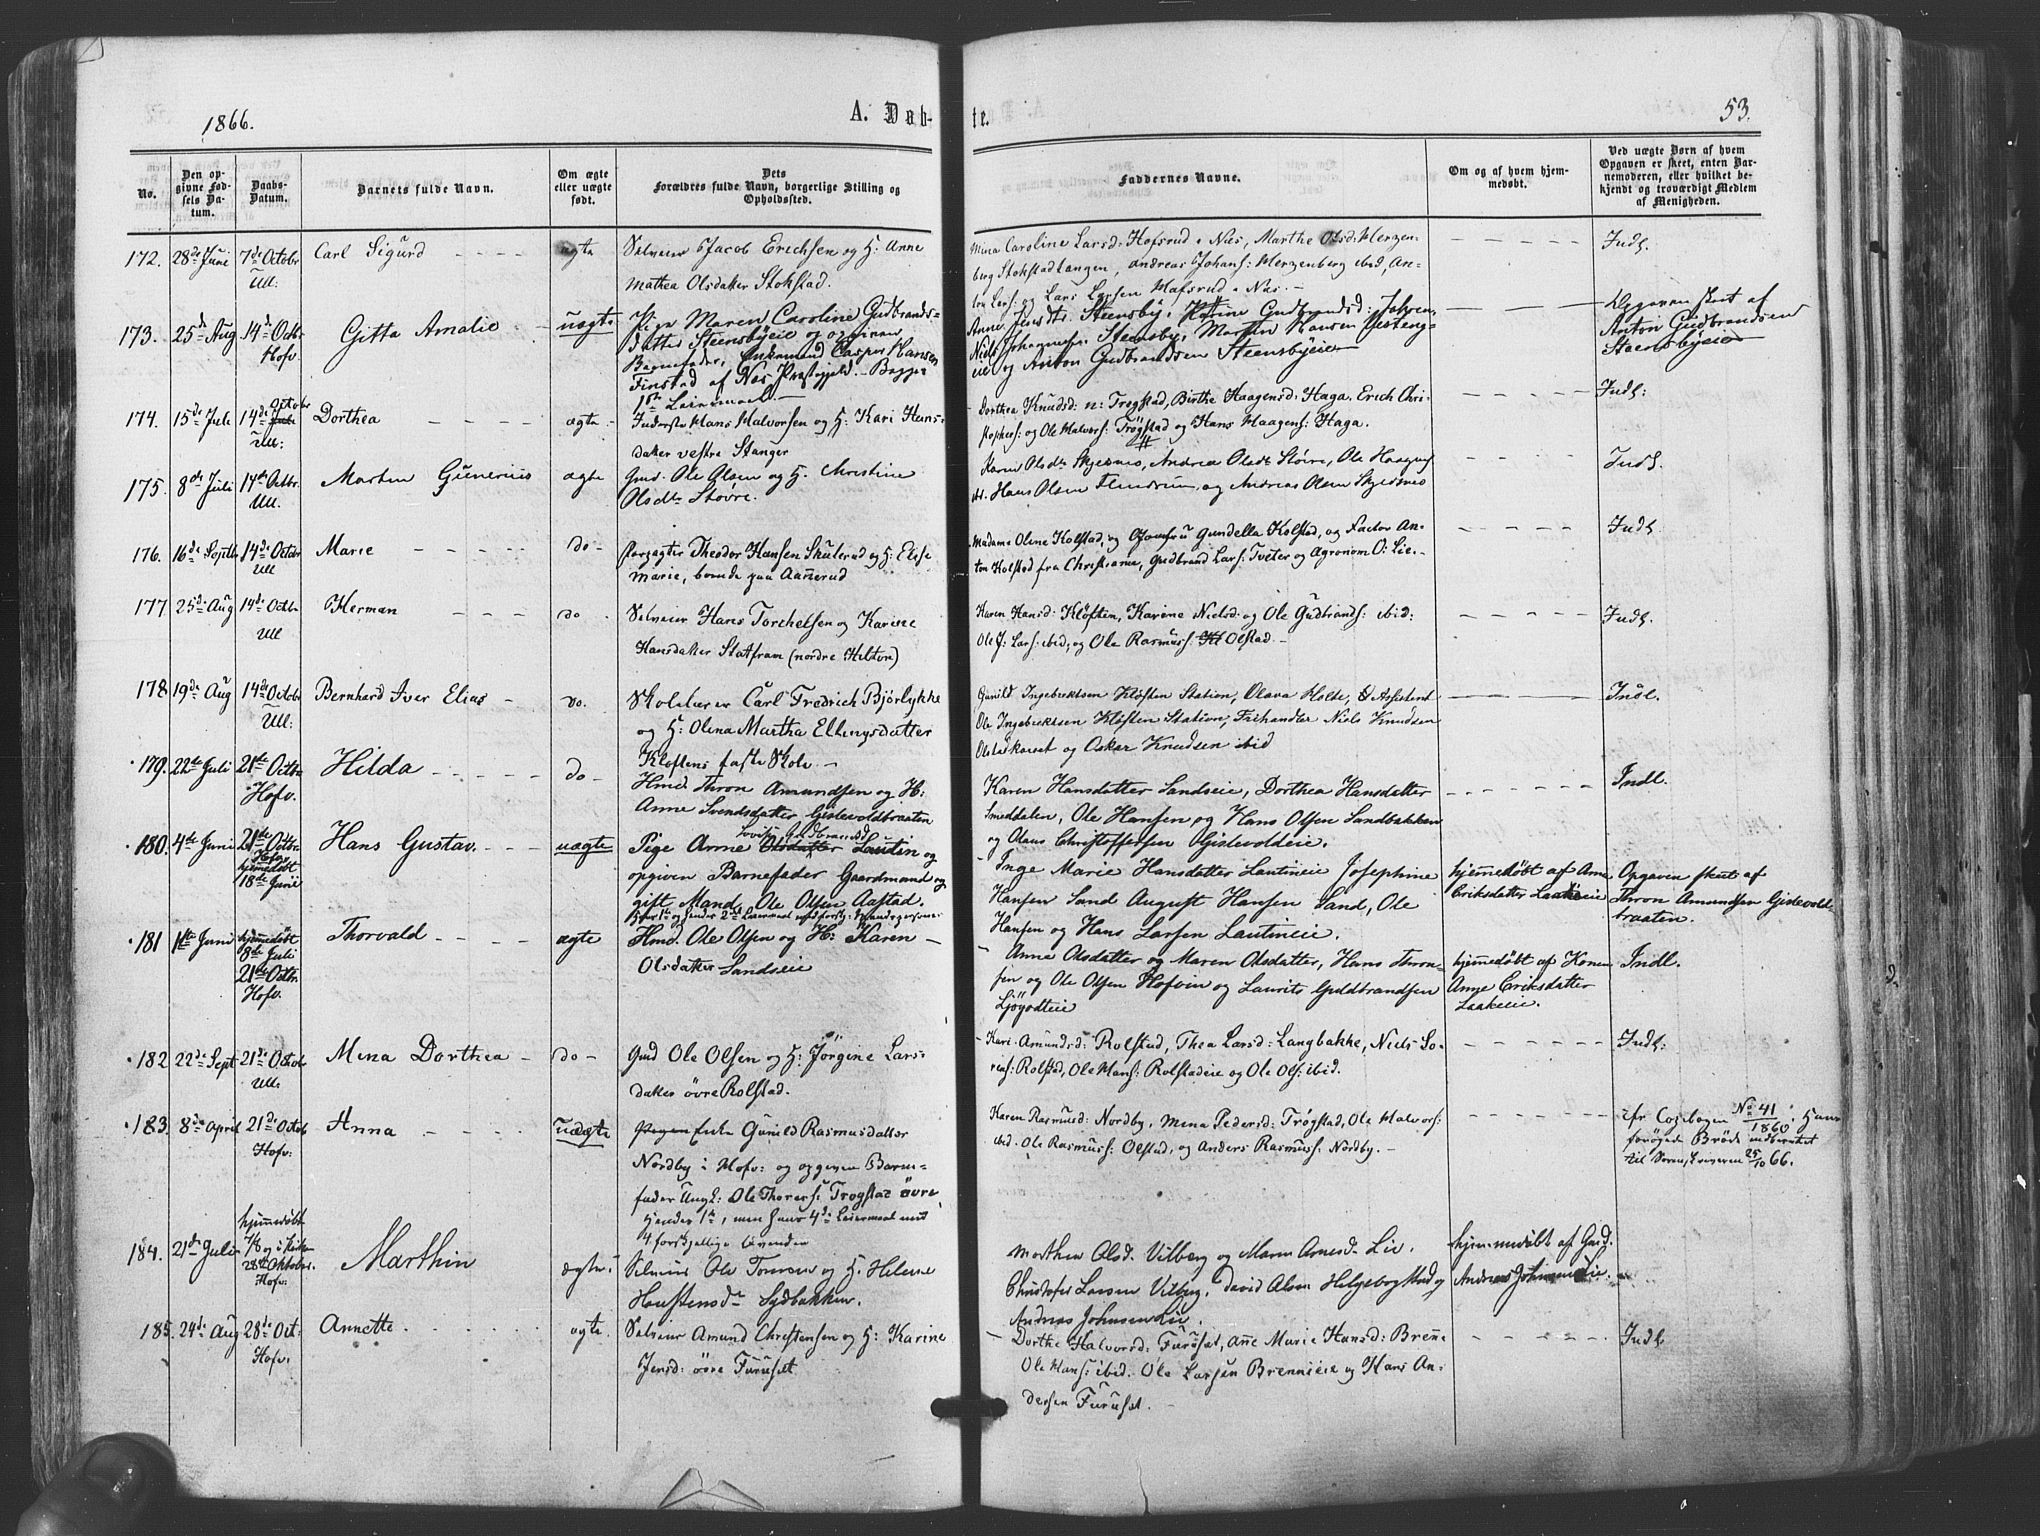 1866.
A. Døb-
te.
53.
No.
Den op-
givne Fød-
sels Da-
tum.
Daabs-
Datum.
Barnets fulde Navn.
Om ægte
eller uægte
født.
Dets
Forældres fulde Navn, borgerlige Stilling og
Opholdssted.
Faddernes Navne.
Om og af hvem hjem-
medøbt.
Ved uægte Børn af hvem
Opgaven er skeet, enten Bar-
nemoderen, eller hvilket be-
kjendt og troværdigt Medlem
af Menigheden.
172. 28de Juni 7de Octobr Ull: Carl Sigurd ægte
Selveier Jacob Erichsen og H: Anne
Mathea Olsdatter Stokstad.
Mina Caroline Larsd: Hofsrud i Næs, Marthe Olsd: Herzen-
berg Stokstad Langen, Andreas Johans: Herzenberg ibid, An-
ton Lars: og Lars Larsen Hafsrud i Næs. -
Indl.
173. 25de Aug 14de Octbr Hofv. Gitta Amalie uægte
Pige Maren Caroline Gudbrands-
datter Steensbyeie og opgiven
Barnefader, Enkemand Casper Hansen
Finstad af Næs Præstegjeld. - Begges
1ste Leiermaal. -
Anne Jensdtr. Steensby, Karine Gudbrandsd:
Niels Johanness: Steensby, Morten Hansen Gisteng-
eie og Anton Gudbrandsen Steensbyeie
Opgaven skeet af
Anton Gudbrandsen
Steensbyeie
174. 15de Juli 14de Octobr Juli Ull: Dorthea ægte
Inderste Hans Halvorsen og H: Kari Hans-
datter vestre Stanger
Dorthea Knudsd: n: Trøgstad, Birthe Haagensd: Haga. Erich Chri-
stophers: og Ole Halvors: Trøgstad og Hans Haagens: Haga.
Indl:
175. 8de Juli 14de Octbr. Ull. Morten Gunerius ægte
Gmd. Ole Olsen og H. Christine
Olsdtr Støvre.
Karen Olsdtr Skjesnes, Andrea Olsdtr Støvre, Ole Haagens:
ibd. Hans Olsen Flendrum, og Andreas Olsen Skjesnes
Indl.
176. 16de Septbr 14de Octobr Ull Marie do -
Forpagter Theodor Hansen Skulerud og H: Elise
Marie, boende paa Aanerud
Madame Oline Kolstad, og Jomfru Gundella Kolstad, og Factor An-
ton Kolstad fra Christiania, Gudbrand Lars: Tveter og Agronom O: Lie-
Indl
177. 25de Aug 14de Octbr Ull Herman do -
Selveier Hans Torchelsen og Karine
Hansdatter Statfram (nordre Hilton)
Karen Hansd: Kløften, Karine Nielsd: og Ole Gudbrands: ibid:
Ole J: Lars: ibid, og Ole Rasmuss: Olstad. -
Indl.
178. 19de Aug 14de Octobr Ull: Bernhard Iver Elias do.
Skolelærer Carl Fredrich Bjørlykke
og H: Olina Martha Ellingsdatter
Kløftens faste Skole -
Gunild Ingebrektsen Kløften Station, Olava Holte, Assistent
Ole Ingebrektsen Kløften Station, Frihandler Niels Knudsen
Olstadkorset og Oskar Knudsen ibid
Indl.
179. 22de Juli 21de Octbr Hofv. Hilda do -
Hmd Thron Amundsen og H:
Anne Svendsdatter Gislevoldbraaten
Karen Hansdatter Sandseie, Dorthea Hansdatter
Smeddalen, Ole Hansen og Hans Olsen Sandbakken
og Olaus Christoffersen Gislevoldeie.
Indl.
180. 4de Juni 21de Octbr Hofv. hjemmedøbt 18de Juni Hans Gustav. uægte
Lovise Gudbransd
Pige Anne Olsdatter Lautin og
opgiven Barnefader Gaardmand og
gift Mand Ole Olsen Aastad.
- Inge Marie Hansdatter Lautineie Josephine
Hansen Sand August Hansen Sand, Ole
Hansen og Hans Larsen Lautineie.
hjemmedøbt af Anne
Eriksdatter Laakeeie
Opgaven skeet af
Thron Amundsen Gislevold-
braaten.
181 1ste Juni hjemmedøbt 8de Juli 21de Octbr. Hofv. Thorvald ægte
Hmd. Ole Olsen og H: Karen
Olsdatter Sandseie
- Anne Olsdatter og Maren Olsdatter, Hans Thron-
sen og Ole Olsen Hofvin og Laurits Guldbrandsen
Ljøgodteie
hjemmedøbt af Konen
Anne Eriksdatter
Laakeeie.
Indl.
182 22de Sept 21de Octobr Ull. Mina Dorthea do -
Gmd Ole Olsen og H: Jørgine Lars-
datter øvre Rolstad.
- Kari Amundsd: Rolstad, Thea Larsd: Langbakke, Niels So-
rens: Rolstad, Ole Hans: Rolstadeie og Ole Ols: ibid.
Indl:
183. 8de April 21de Octob Hofv: Anna uægte
Enke Gunild Rasmusdatter
Nordby i Hofv: og opgiven Barne-
fader Ungk: Ole Thores: Trøgstad øvre
hendes 1ste, men hans 4de Leiermaal med
4 forskjellige Qvinder
Karen Rasmusd: Nordby, Mina Pedersd: Trøgstad, Ole Halvors:
ibid. Ole Rasmuss: Olstad, og Anders Rasmuss: Nordby. -
cfr Copiebogen No 41/1860. Hans
forøgede Brøde indberettet
til Sorenskriveren 25/10 66.
184. 21de Juli hjemmedøbt 7/8 og i Kirken 28de Oktober. Hofv: Marthin ægte
Selveier Ole Tomsen og H. Helene
Houstensdtr Sydbakken.
Morthea Olsd. Vilberg og Maren Arnesd. Lie.
Christofer Larsen Vilberg, David Olsen Helgebostad og
Andreas Johnsen Lie.
hjemmedøbt af Gmd.
Andreas Johnsen Lie.
185. 24de Aug 28de Oct: Hofv: Annette. ægte.
Selveier Amund Christensen og H: Karine
Jensd: øvre Furuset
- Dorthe Halvorsd: Furuset, Ane Marie Hansd: Brenne
Ole Hans: ibid. Ole Larsen Brennieie og Hans An-
dersen Furuset. -
Indl